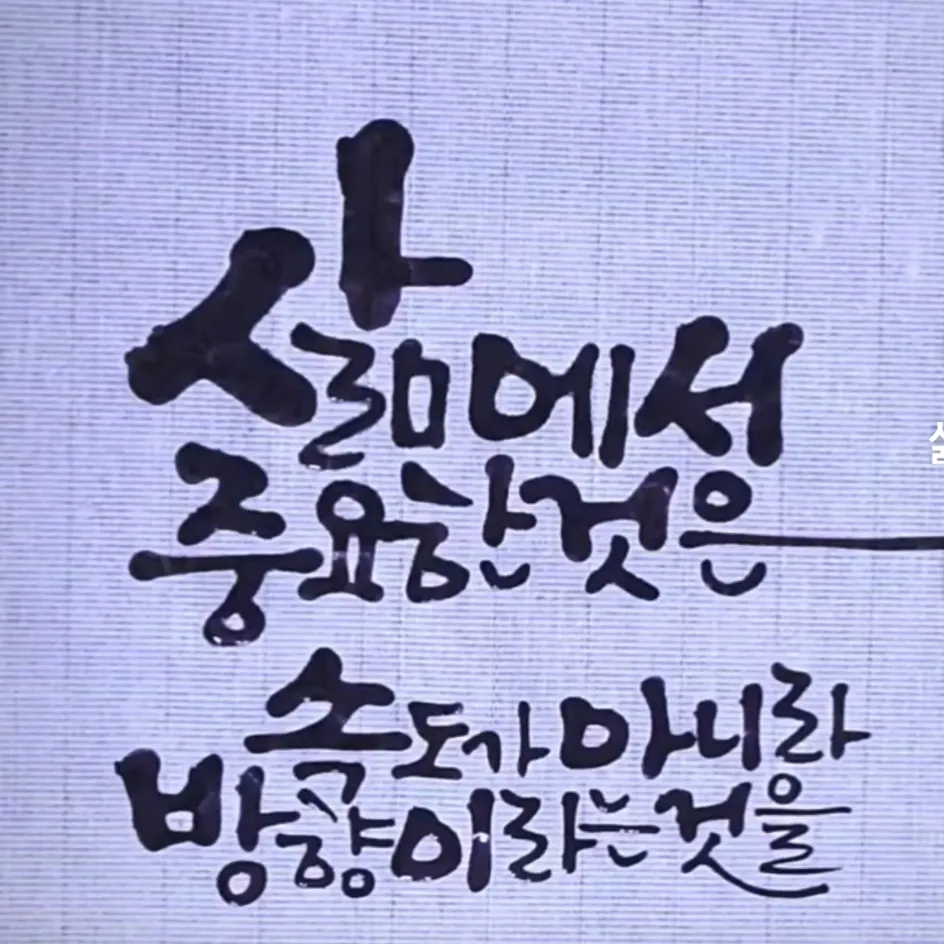 삶에서
중요한것은
속도가아니라
방향이라는것을